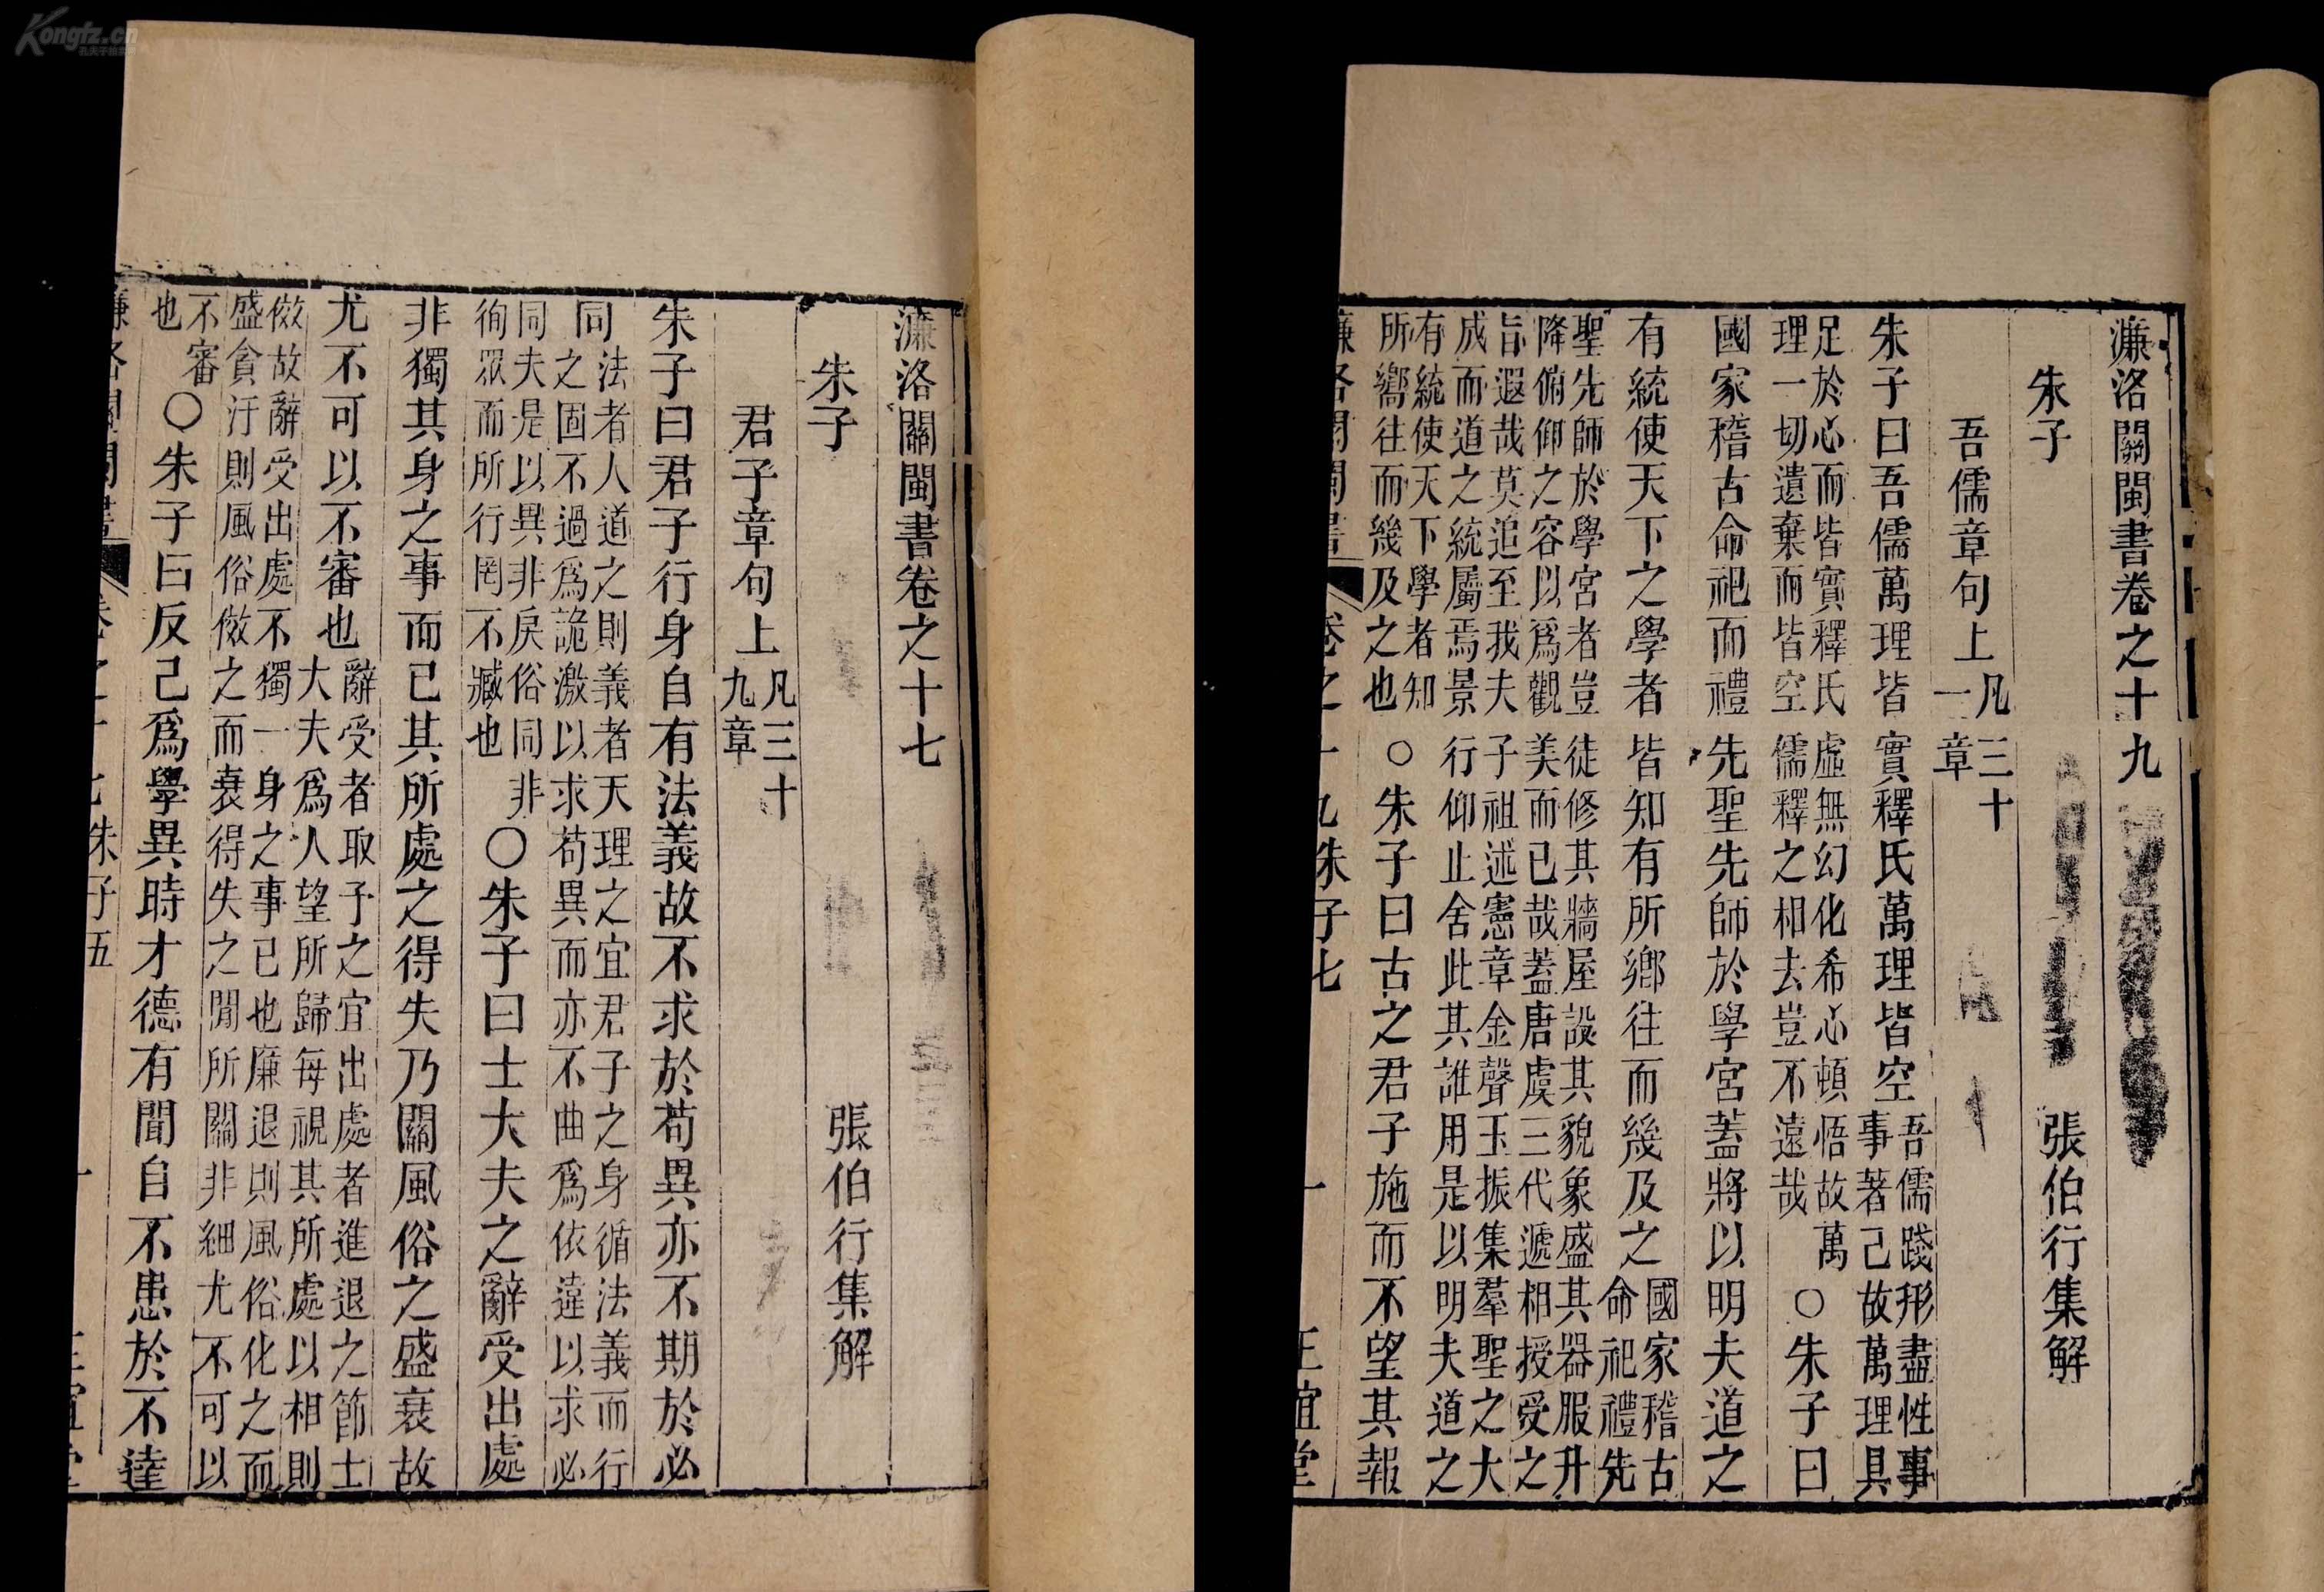 濂洛關閩書卷之十七
朱子 張伯行集解
君子章句上 凡三十九章
朱子曰君子行身自有法義故不求於苟異亦不期於必
同 法者人道之則義者天理之宜君子之身循法義而行
之固不過爲詭激以求苟異而亦不曲爲依違以求必
同夫是以異非戾俗同非
徇眾而所行罔不臧也
○朱子曰士大夫之辭受出處
非獨其身之事而已其所處之得失乃關風俗之盛衰故
尤不可以不審也 辭受者取予之宜出處者進退之節士
大夫爲人望所歸每視其所處以相則
倣故辭受出處不獨一身之事已也廉退則風俗化之而
盛貪汙則風俗倣之而衰得失之閒所關非細尤不可以
不審
也
○朱子曰反己爲學異時才德有聞自不患於不達
濂洛關閩書 卷之十七朱子五 一 正誼堂
濂洛關閩書卷之十九
朱子 張伯行集解
吾儒章句上 凡三十一章
朱子曰吾儒萬理皆實釋氏萬理皆空 吾儒踐形盡性事
事著己故萬理具
足於心而皆實釋氏虛無幻化希心頓悟故萬
理一切遺棄而皆空儒釋之相去豈不遠哉
○朱子曰
國家稽古命祀而禮先聖先師於學宮蓋將以明夫道之
有統使天下之學者皆知有所鄉往而幾及之 國家稽古
命祀禮先
聖先師於學宮者豈徒修其牆屋設其貌象盛其器服升
降俯仰之容以爲觀美而已哉蓋唐虞三代遞相授受之
旨遐哉莫追至我夫子祖述憲章金聲玉振集羣聖之大
成而道之統屬焉景行仰止舍此其誰用是以明夫道之
有統使天下學者知
所嚮往而幾及之也
○朱子曰古之君子施而不望其報
濂洛關閩書 卷之十九朱子七 一 正誼堂
Kongfz.cn